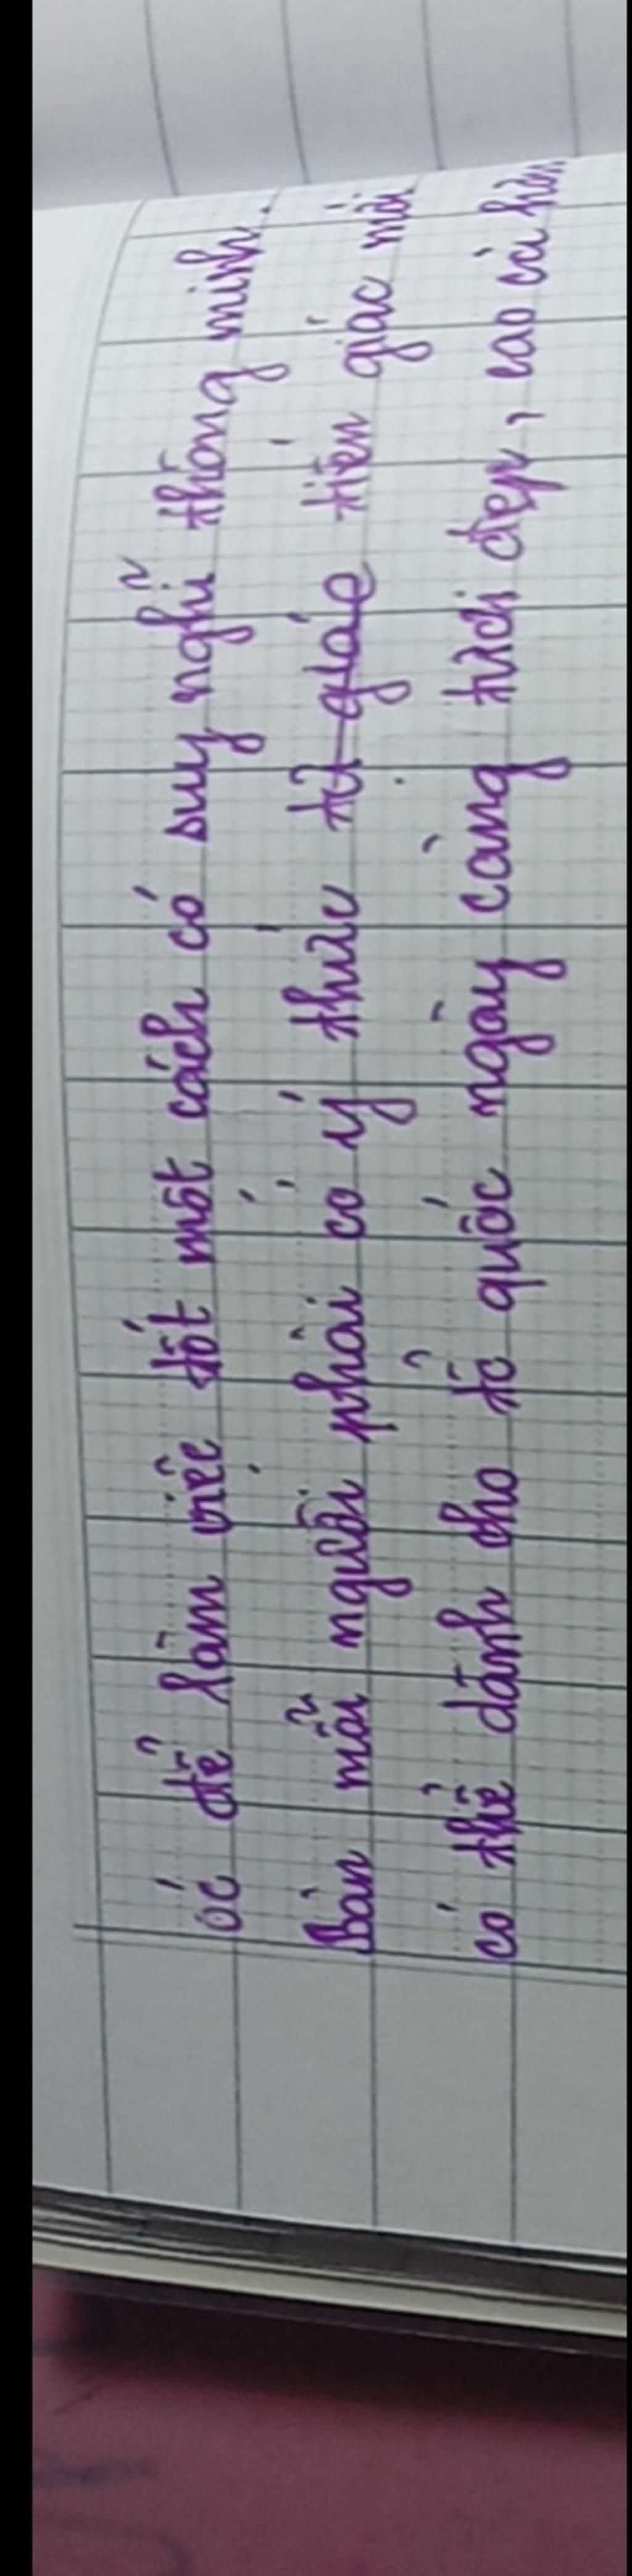 óc để làm việc tốt một cách có suy nghĩ thông minh.
Bản mỗi người phải có ý thức tự giác tiên giác mới
có thể dành cho tổ quốc ngày càng tươi đẹp, cao cả hơn